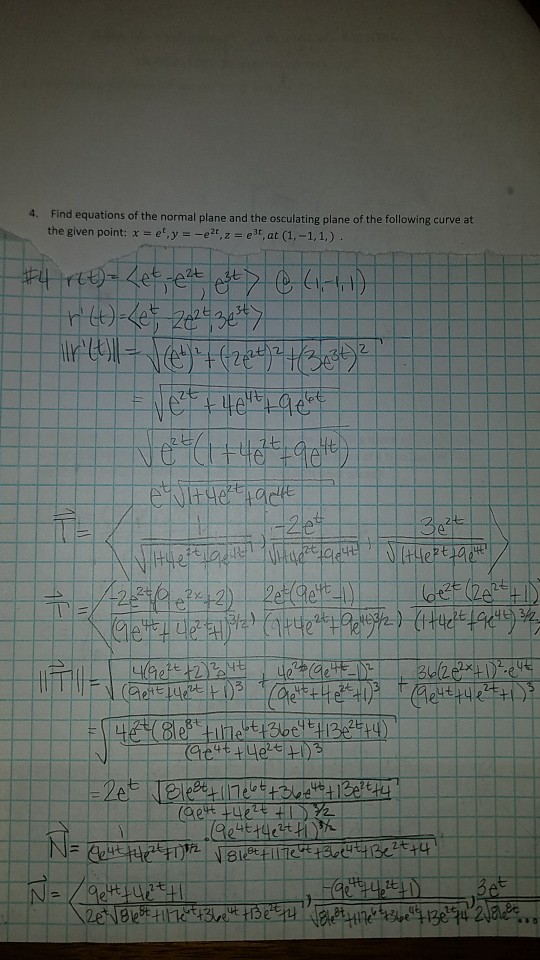 4. Find equations of the normal plane and the osculating plane of the following curve at
the given point: x = e^t, y = −e^{2t}, z = e^{3t}, at (1, −1, 1, ) .
#4 r(t) = <e^t, -e^{2t}, e^{3t}> @ (1,-1,1)
r'(t) = <e^t, 2e^{2t}, 3e^{3t}>
||r'(t)|| = √((e^t)^2 + (-2e^{2t})^2 + (3e^{3t})^2)
= √(e^{2t} + 4e^{4t} + 9e^{6t})
√(e^{2t}(1 + 4e^{2t} + 9e^{4t}))
e^t √(1+4e^{2t}+9e^{4t})
T = < 1/√(1+4e^{2t}+9e^{4t}), -2e^t/√(1+4e^{2t}+9e^{4t}), 3e^{2t}/√(1+4e^{2t}+9e^{4t}) >
T' = < -2e^{2t}(9e^{2x}+2)/(9e^{4t}+4e^{2t}+1)^{3/2}, 2e^t(9e^{4t}-1)/(1+4e^{2t}+9e^{4t})^{3/2}, 6e^{2t}(2e^{2t}+1)/(1+4e^{2t}+9e^{4t})^{3/2}
||T'|| = √(4(9e^{2t}+2)^2 e^{4t}/(9e^{4t}+4e^{2t}+1)^3 + 4e^{2t}(9e^{4t}-1)^2/(9e^{4t}+4e^{2t}+1)^3 + 36(2e^{2x}+1)^2·e^{4t}/(9e^{4t}+4e^{2t}+1)^3)
= √(4e^{2t}(81e^{8t}+117e^{6t}+36e^{4t}+13e^{2t}+4)/(9e^{4t}+4e^{2t}+1)^3)
= 2e^t √(81e^{8t}+117e^{6t}+36e^{4t}+13e^{2t}+4)/(9e^{4t}+4e^{2t}+1)^{3/2}
N = 1/(9e^{4t}+4e^{2t}+1)^{3/2} · (9e^{4t}+4e^{2t}+1)^{3/2}/√(81e^{8t}+117e^{6t}+36e^{4t}+13e^{2t}+4)
N = < 9e^{4t}+4e^{2t}+1/2e^t√(81e^{8t}+117e^{6t}+36e^{4t}+13e^{2t}+4), -(9e^{4t}+4e^{2t}+1)/√(81e^{8t}+117e^{6t}+36e^{4t}+13e^{2t}+4), 3e^t/2√(81e^{8t}...